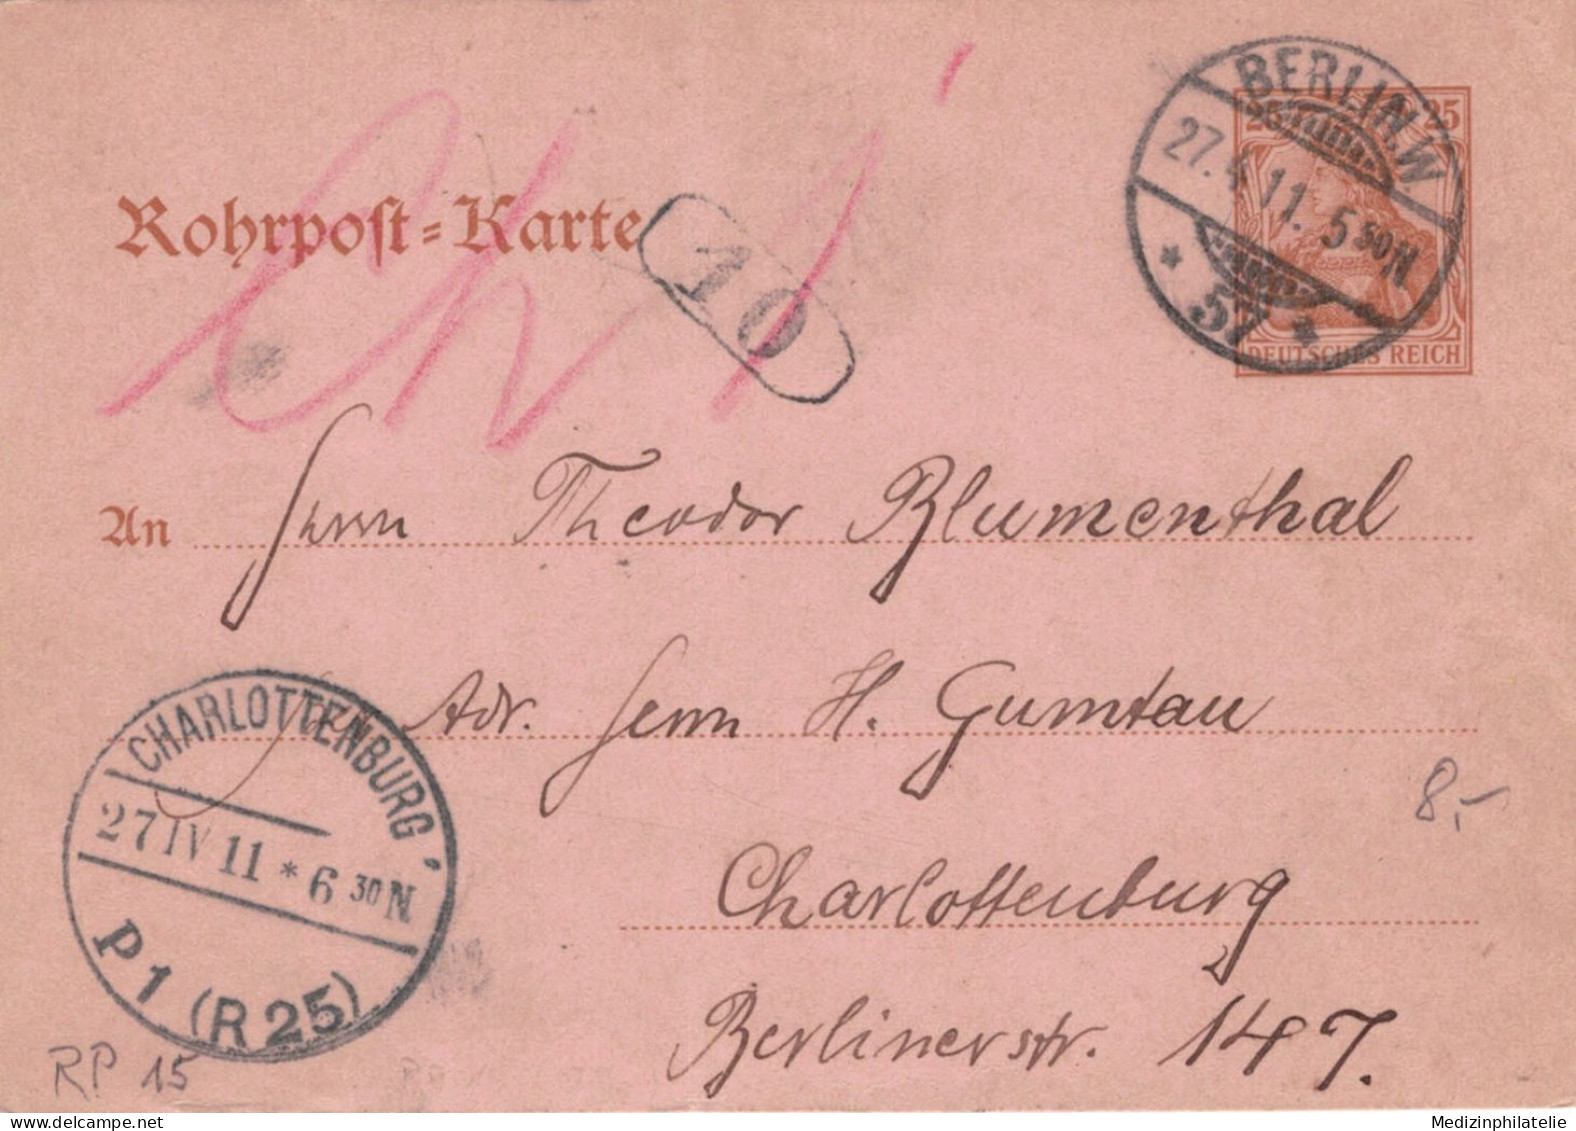 BERLIN.W
27.4.11. 5 30N
* 57 *
25 25
DEUTSCHES REICH
Rohrpost=Karte
10
An Herrn Theodor Blumenthal
Adr. Herrn H. Gumtau
Charlottenburg
Berlinerstr. 147.
8,-
CHARLOTTENBURG
27 IV 11 * 6 30N
P1 (R25)
RP 15
Medizinphilatelie